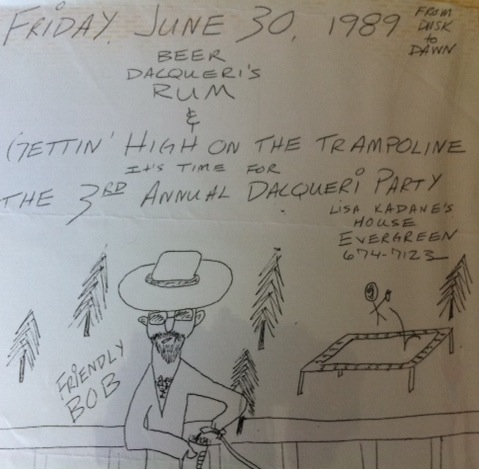 FRIDAY, JUNE 30, 1989
FROM
DUSK
to
DAWN
BEER
DACQUERI'S
RUM
&
GETTIN' HIGH ON THE TRAMPOLINE
IT'S TIME FOR
THE 3RD ANNUAL DACQUERI PARTY
LISA KADANE'S
HOUSE
EVERGREEN
674-7123
FRIENDLY
BOB